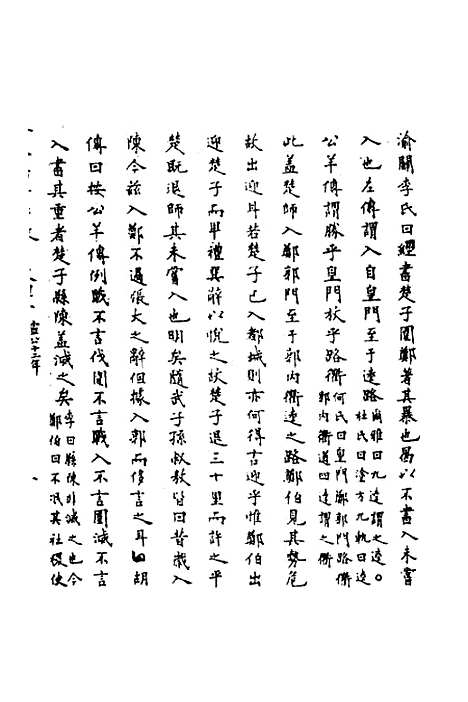 渝關李氏曰經書楚子圍鄭著其暴也曷以不書入未嘗
入也左傳謂入自皇門至于逵路爾雅曰九逵謂之逵。杜氏曰塗方九軌曰逵
公羊傳謂勝乎皇門放乎路衢何氏曰皇門鄭郭門路衢郭內衢道四逵謂之衢
此盖楚師入鄭郭門至于郭內衢逵之路鄭伯見其勢危
故出迎耳若楚子已入都城則亦何得言迎乎惟鄭伯出
迎楚子而卑禮巽辭以悅之故楚子退三十里而許之平
楚既退師其未嘗入也明矣隨武子孫叔敖皆曰昔歲入
陳今茲入鄭不過張大之辭但據入郭而侈言之耳曰胡
傳曰按公羊傳例戰不言伐圍不言戰入不言圍滅不言
入書其重者楚子縣陳盖滅之矣李曰縣陳非滅之也今鄭伯曰不泯其社稷使
宣公十二年